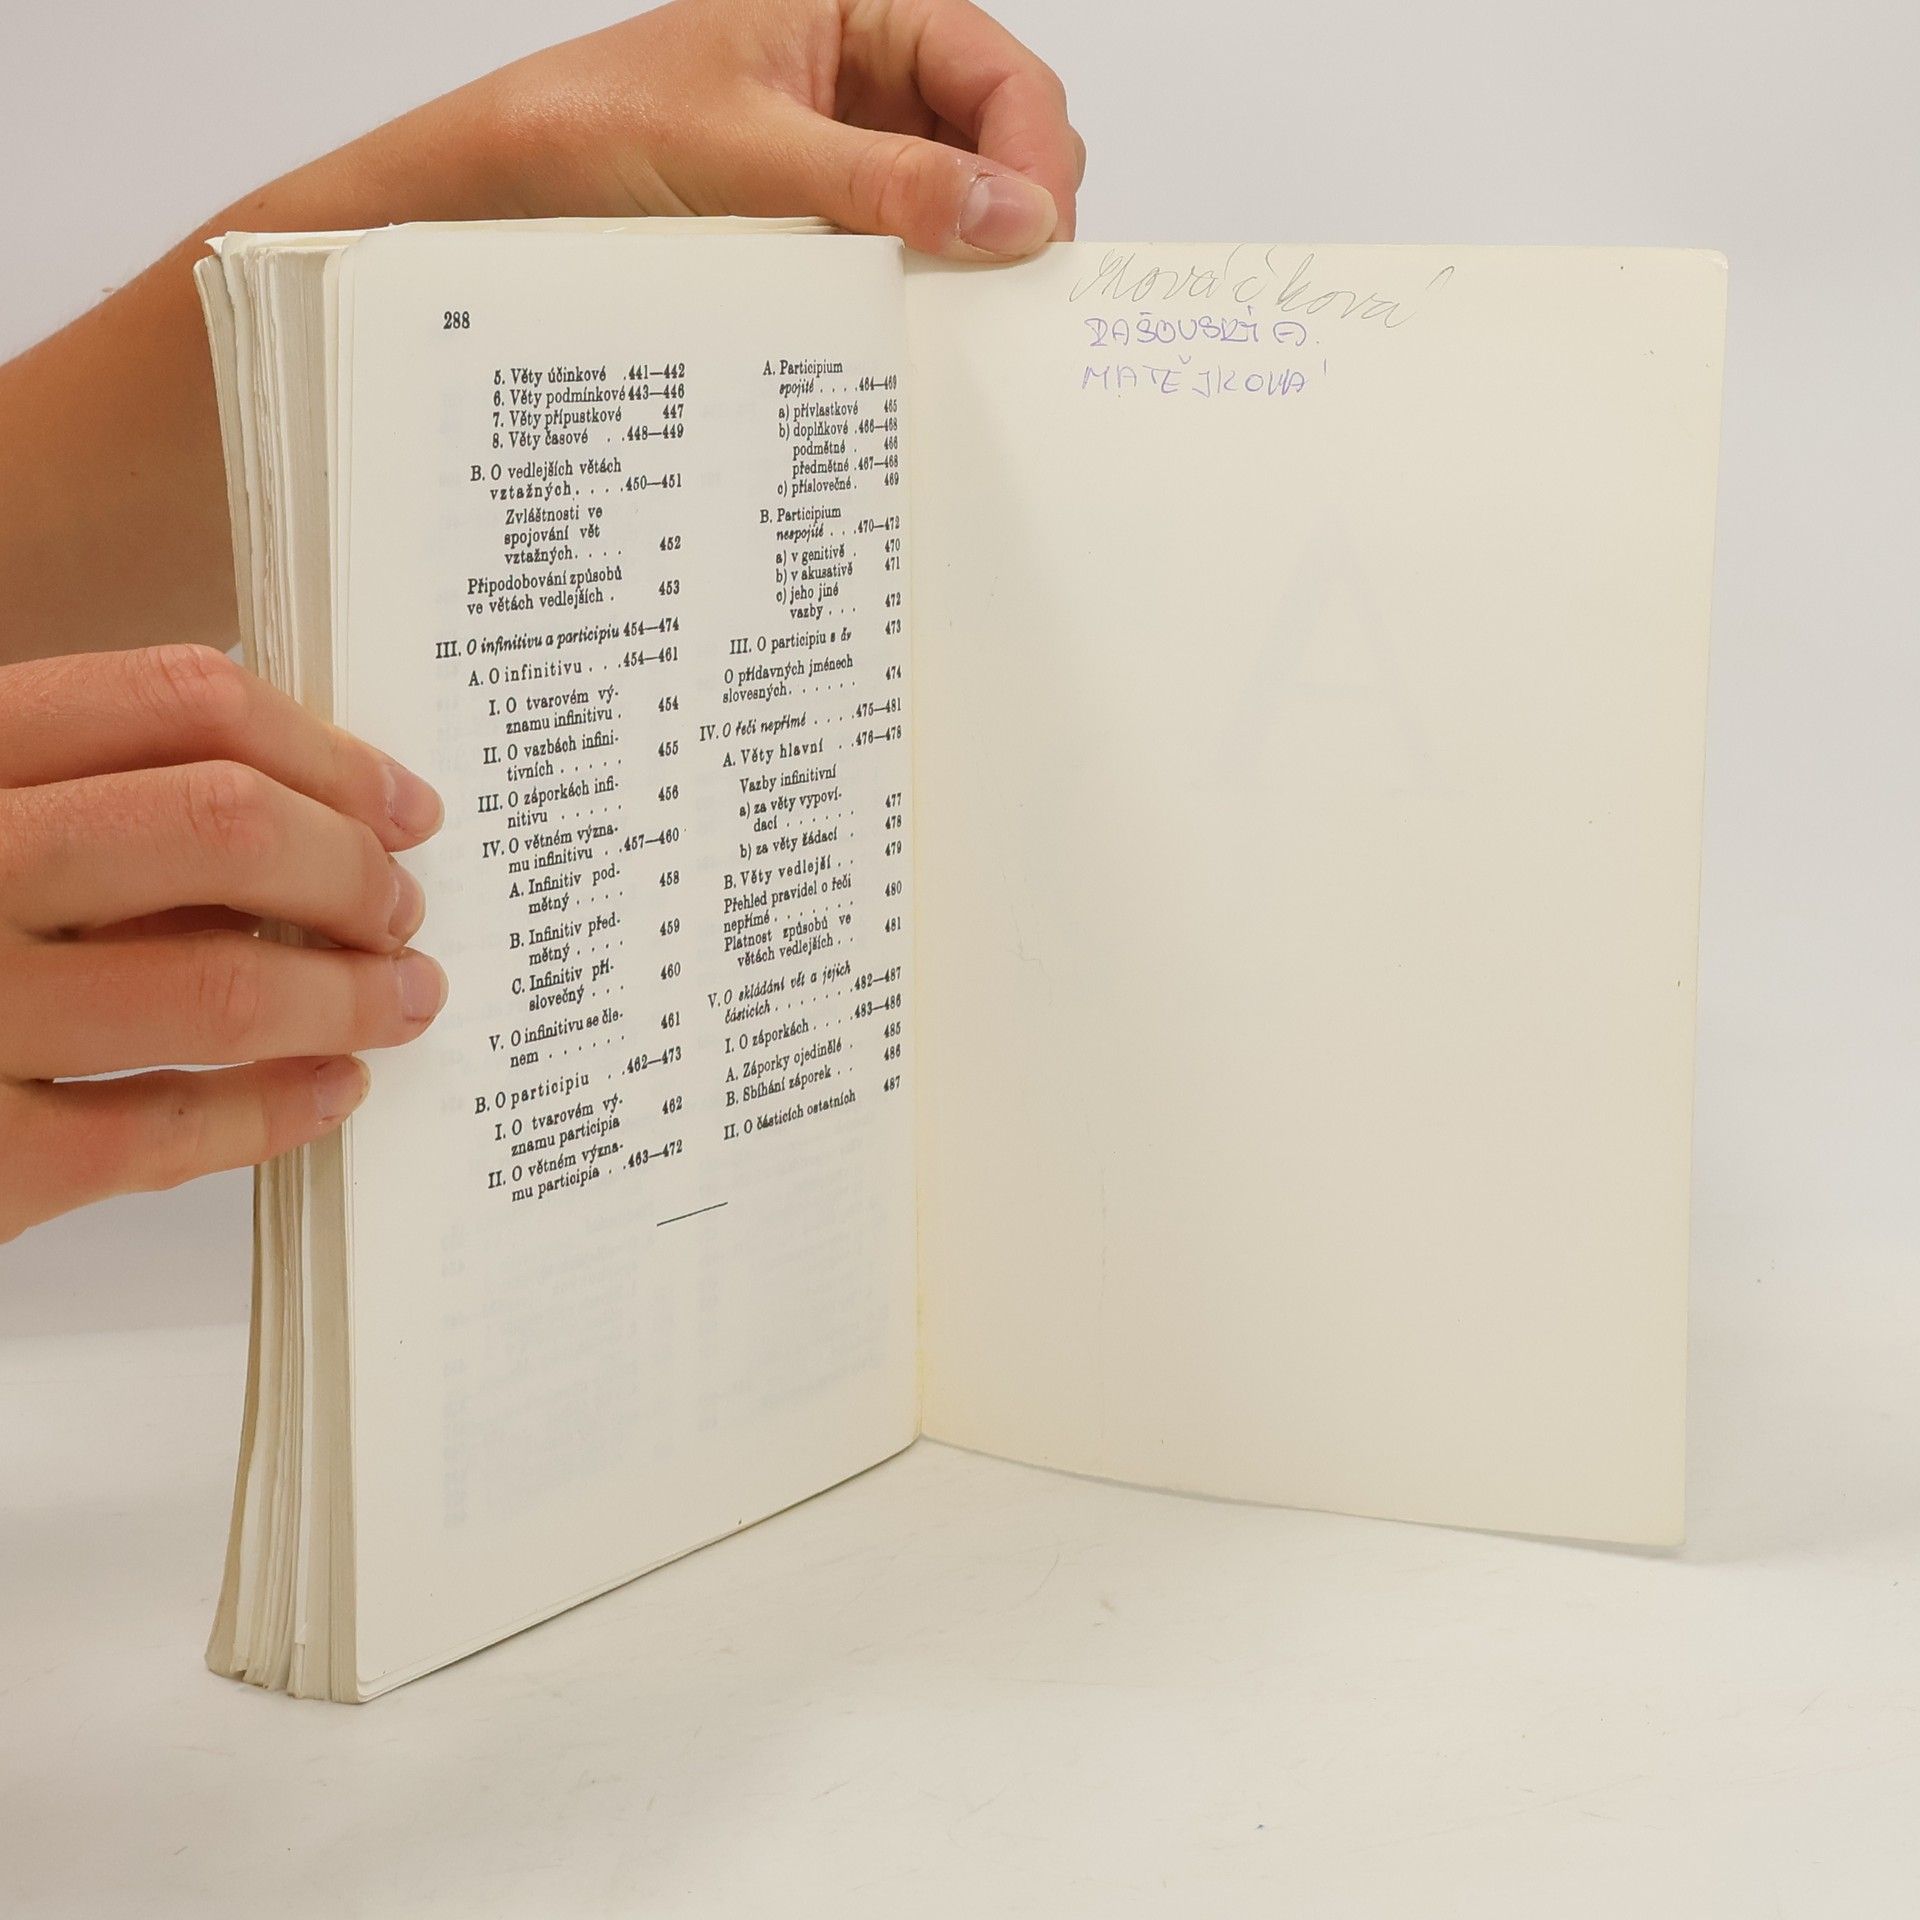 288
5. Věty účinkové . 441—442
6. Věty podmínkové 443—446
7. Věty přípustkové 447
8. Věty časové . . 448—449
B. O vedlejších větách
vztažných. . . . 450—451
Zvláštnosti ve
spojování vět
vztažných. . . . 452
Připodobování způsobů
ve větách vedlejších . 453
III. O infinitivu a participiu 454—474
A. O infinitivu . . . 454—461
I. O tvarovém vý-
znamu infinitivu . 454
II. O vazbách infini-
tivních . . . . . 455
III. O záporkách infi-
nitivu . . . . . 456
IV. O větném význa-
mu infinitivu . . 457—460
A. Infinitiv pod-
mětný . . . . 458
B. Infinitiv před-
mětný . . . . 459
C. Infinitiv pří-
slovečný . . . 460
V. O infinitivu se čle-
nem . . . . . . 461
B. O participiu . . 462—473
I. O tvarovém vý-
znamu participia 462
II. O větném význa-
mu participia . . 463—472
A. Participium
spojité . . . . 464—469
a) přívlastkové 465
b) doplňkové . 466—468
podmětné . 466
předmětné . 467—468
c) příslovečné . 469
B. Participium
nespojité . . . 470—472
a) v genitivě . 470
b) v akusativě 471
c) jeho jiné
vazby . . . 472
III. O participiu s ἄν 473
O přídavných jménech
slovesných. . . . . . 474
IV. O řeči nepřímé . . . . 475—481
A. Věty hlavní . . 476—478
Vazby infinitivní
a) za věty vypoví-
dací . . . . . . 477
b) za věty žádací . 478
B. Věty vedlejší . . 479
Přehled pravidel o řeči
nepřímé. . . . . . . 480
Platnost způsobů ve
větách vedlejších . . 481
V. O skládání vět a jejich
částicích . . . . . . . 482—487
I. O záporkách . . . . 483—486
A. Záporky ojedinělé . 485
B. Sbíhání záporek . . 486
II. O částicích ostatních 487
Kováčková
RAŠOVSKÝ A.
MATĚJKOVÁ